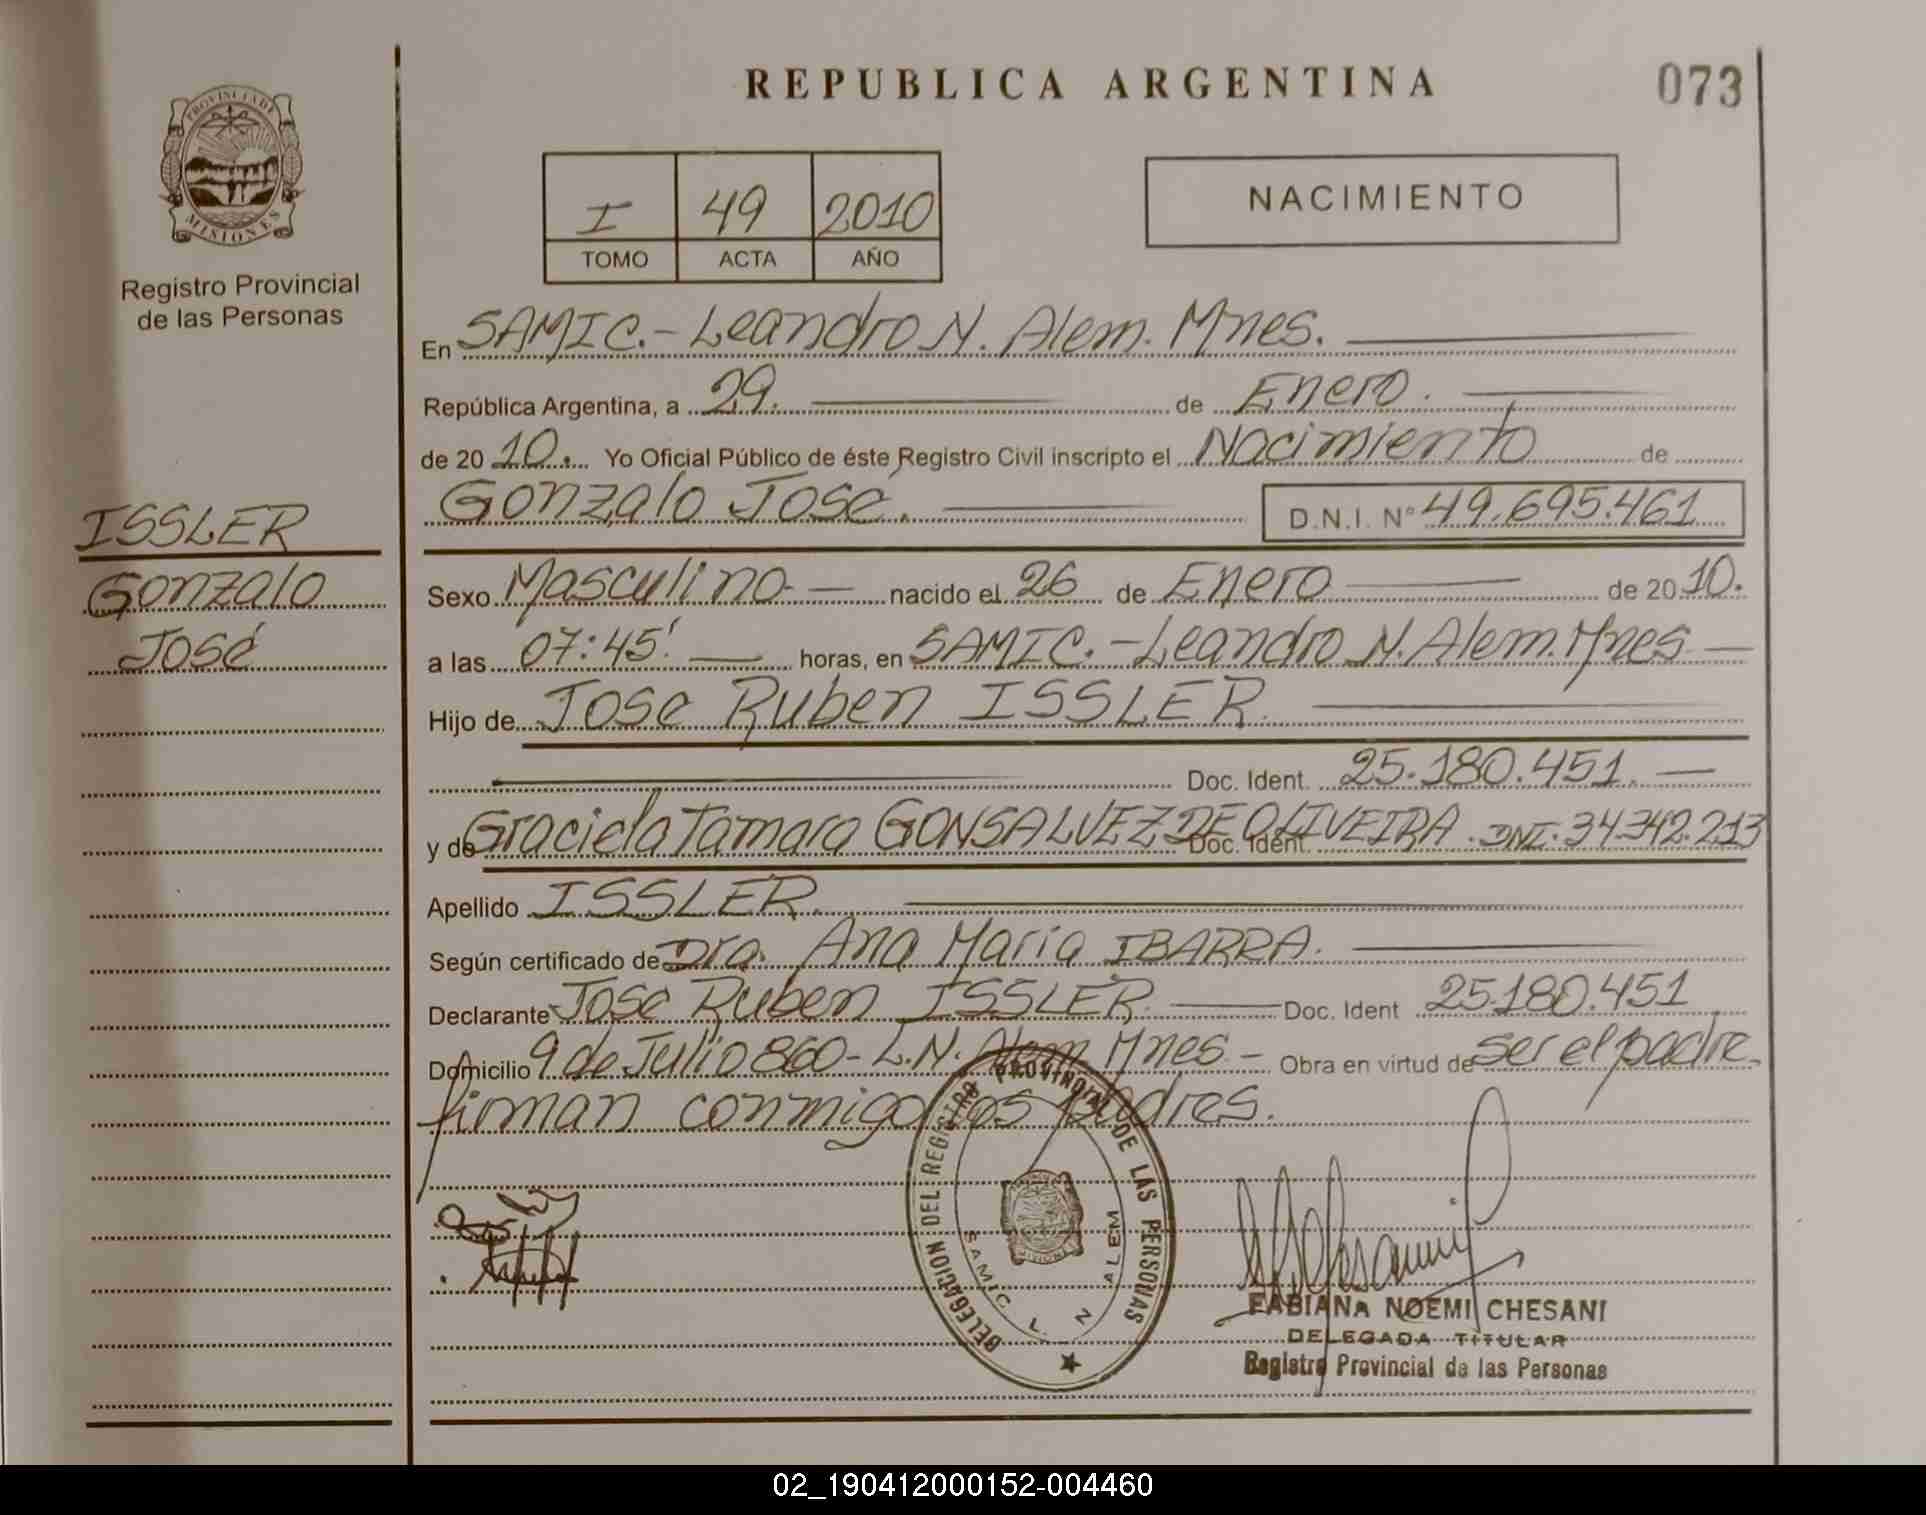 REPUBLICA ARGENTINA
073
PROVINCIA DE
MISIONES
Registro Provincial
de las Personas
I 49 2010
TOMO ACTA AÑO
NACIMIENTO
En SAMIC.- Leandro N. Alem. Mnes.
República Argentina, a 29. de Enero.
de 20 10. Yo Oficial Público de éste Registro Civil inscripto el Nacimiento de
Gonzalo José. D.N.I. Nº 49.695.461
ISSLER
Gonzalo
José
Sexo Masculino- nacido el 26 de Enero de 20 10.
a las 07:45' horas, en SAMIC.-Leandro N. Alem. Mnes
Hijo de Jose Ruben ISSLER.
Doc. Ident. 25.180.451.
y de Graciela Tamara GONSALVEZ DE OLIVEIRA. Doc. Ident. DNI: 34.342.213
Apellido ISSLER.
Según certificado de Dra. Ana Maria IBARRA.
Declarante Jose Ruben ISSLER. Doc. Ident 25.180.451
Domicilio 9 de Julio 860- L.N. Alem Mnes - Obra en virtud de ser el padre.
firman conmigo los padres.
DELEGACION DEL REGISTRO PROVINCIAL DE LAS PERSONAS
SAMIC L. N ALEM
MISIONES
FABIANA NOEMI CHESANI
DELEGADA TITULAR
Registro Provincial de las Personas
02_190412000152-004460